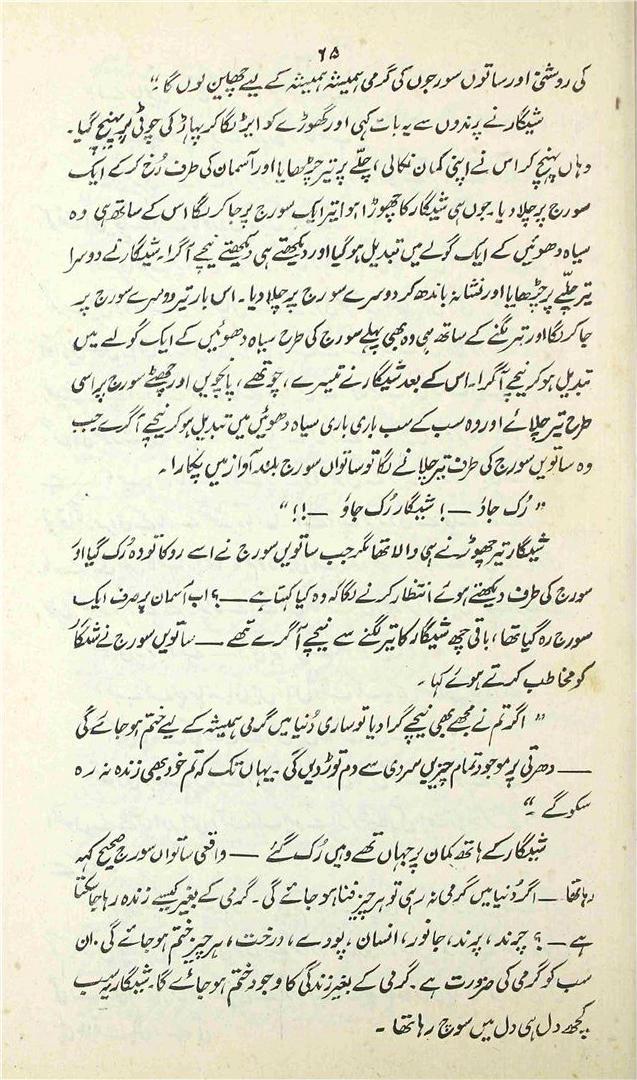 ۶۵
کی روشنی اور ساتوں سورجوں کی گرمی ہمیشہ ہمیشہ کے لیے چھین لوں گا۔"
شیگار نے پرندوں سے یہ بات کہی اور گھوڑے کو ایڑ لگا کر پہاڑ کی چوٹی پر پہنچ گیا۔
وہاں پہنچ کر اس نے اپنی کمان نکالی، چلّے پر تیر چڑھایا اور آسمان کی طرف رُخ کر کے ایک
سورج پر چلا دیا۔ جوں ہی شیگار کا چھوڑا ہوا تیر ایک سورج پر جا کر لگا اس کے ساتھ ہی وہ
سیاہ دھوئیں کے ایک گولے میں تبدیل ہو گیا اور دیکھتے ہی دیکھتے نیچے آ گرا۔ شیگار نے دوسرا
تیر چلّے پر چڑھایا اور نشانہ باندھ کر دوسرے سورج پر چلا دیا۔ اس بار تیر دوسرے سورج پر
جا کر لگا اور تیر لگنے کے ساتھ ہی وہ بھی پہلے سورج کی طرح سیاہ دھوئیں کے ایک گولے میں
تبدیل ہو کر نیچے آ گرا۔ اس کے بعد شیگار نے تیسرے، چوتھے، پانچویں اور چھٹے سورج پر اسی
طرح تیر چلائے اور وہ سب کے سب باری باری سیاہ دھوئیں میں تبدیل ہو کر نیچے آ گرے جب
وہ ساتویں سورج کی طرف تیر چلانے لگا تو ساتواں سورج بلند آواز میں پکارا۔
"رُک جاؤ —! شیگار رُک جاؤ —!!"
شیگار تیر چھوڑنے ہی والا تھا مگر جب ساتویں سورج نے اسے روکا تو وہ رُک گیا اور
سورج کی طرف دیکھتے ہوئے انتظار کرنے لگا کہ وہ کیا کہتا ہے —؟ اب آسمان پر صرف ایک
سورج رہ گیا تھا، باقی چھ شیگار کا تیر لگنے سے نیچے آ گرے تھے — ساتویں سورج نے شیگار
کو مخاطب کرتے ہوئے کہا۔
"اگر تم نے مجھے بھی نیچے گرا دیا تو ساری دُنیا میں گرمی ہمیشہ کے لیے ختم ہو جائے گی
— دھرتی پر موجود تمام چیزیں سردی سے دم توڑ دیں گی۔ یہاں تک کہ تم خود بھی زندہ نہ رہ
سکو گے۔"
شیگار کے ہاتھ کمان پر جہاں تھے وہیں رُک گئے — واقعی ساتواں سورج صحیح کہہ
رہا تھا — اگر دُنیا میں گرمی نہ رہی تو ہر چیز فنا ہو جائے گی۔ گرمی کے بغیر کیسے زندہ رہا جا سکتا
ہے —؟ چرند، پرند، جانور، انسان، پودے، درخت، ہر چیز ختم ہو جائے گی۔ ان
سب کو گرمی کی ضرورت ہے۔ گرمی کے بغیر زندگی کا وجود ختم ہو جائے گا۔ شیگار یہ سب
کچھ دل ہی دل میں سوچ رہا تھا۔